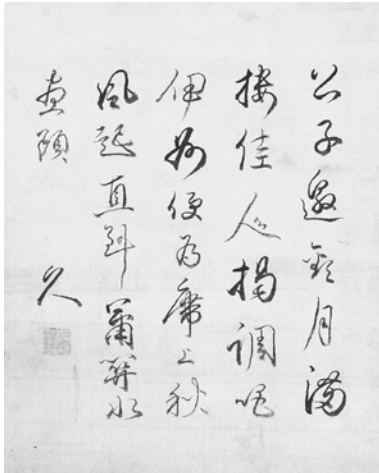 公子邀歡月滿
樓佳人揭調唱
伊州便為席上秋
風起直到蕭關水
盡頭